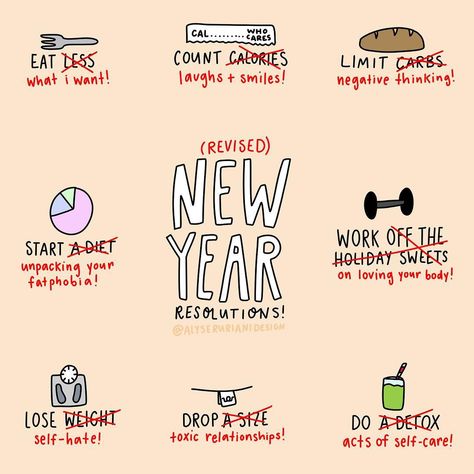 CAL........ WHO CARES
EAT LESS
what i want!
COUNT CALORIES
laughs + smiles!
LIMIT CARBS
negative thinking!
(REVISED)
NEW
YEAR
RESOLUTIONS!
@ALYSERURIANIDESIGN
START A DIET
unpacking your
fatphobia!
WORK OFF THE
HOLIDAY SWEETS
on loving your body!
LOSE WEIGHT
self-hate!
DROP A SIZE
toxic relationships!
DO A DETOX
acts of self-care!